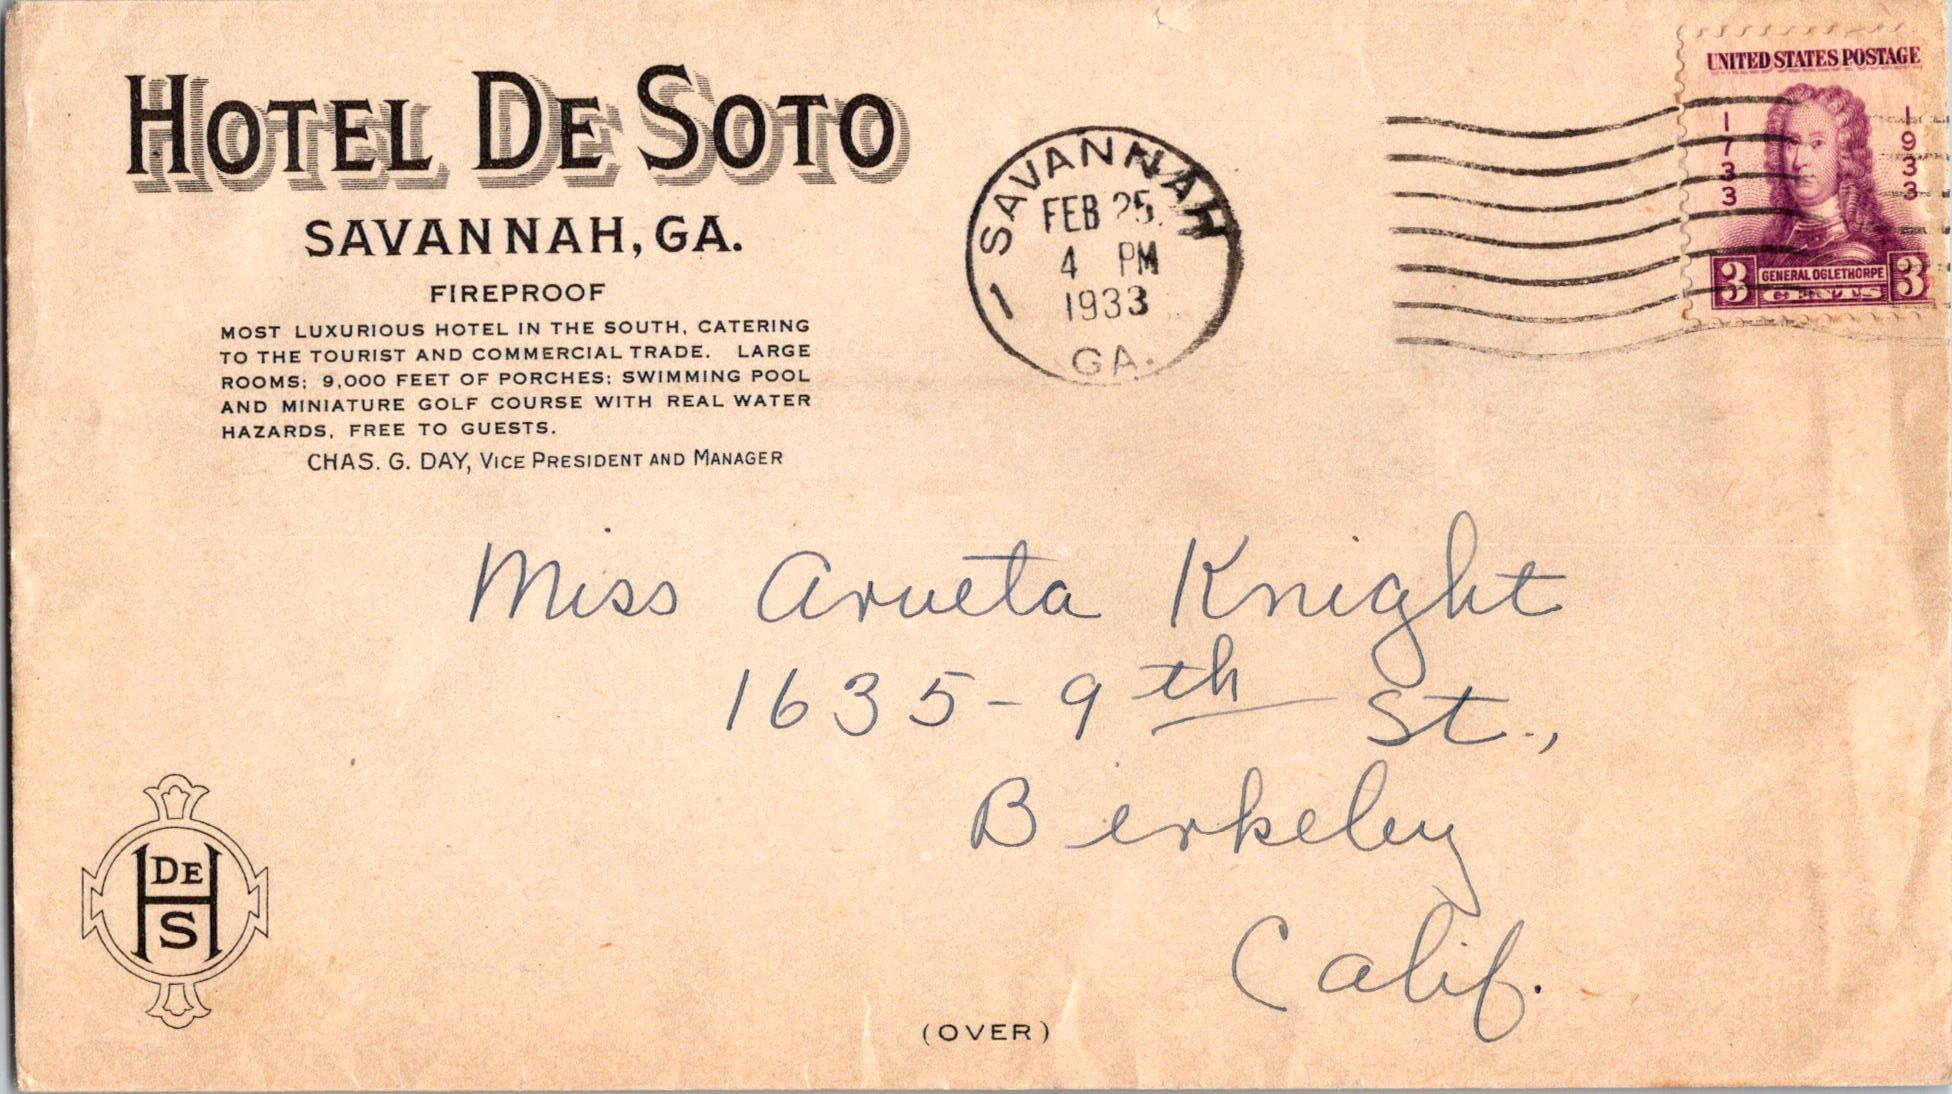 HOTEL DE SOTO
SAVANNAH, GA.
FIREPROOF
MOST LUXURIOUS HOTEL IN THE SOUTH, CATERING
TO THE TOURIST AND COMMERCIAL TRADE. LARGE
ROOMS; 9,000 FEET OF PORCHES; SWIMMING POOL
AND MINIATURE GOLF COURSE WITH REAL WATER
HAZARDS, FREE TO GUESTS.
CHAS. G. DAY, VICE PRESIDENT AND MANAGER
SAVANNAH
FEB 25
4 PM
1933
1
GA.
UNITED STATES POSTAGE
1733
1933
GENERAL OGLETHORPE
3 CENTS 3
Miss Arveta Knight
1635-9th St.,
Berkeley
Calif.
DE
H
S
(OVER)